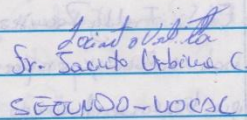 Sr. Jacinto Urbina C.
SEGUNDO-VOCAL